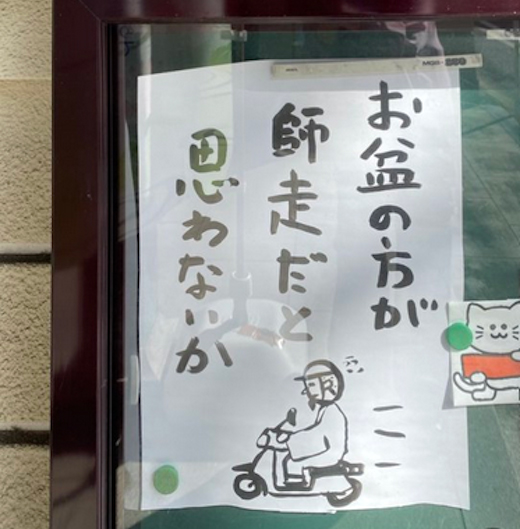 お盆の方が
師走だと
思わないか